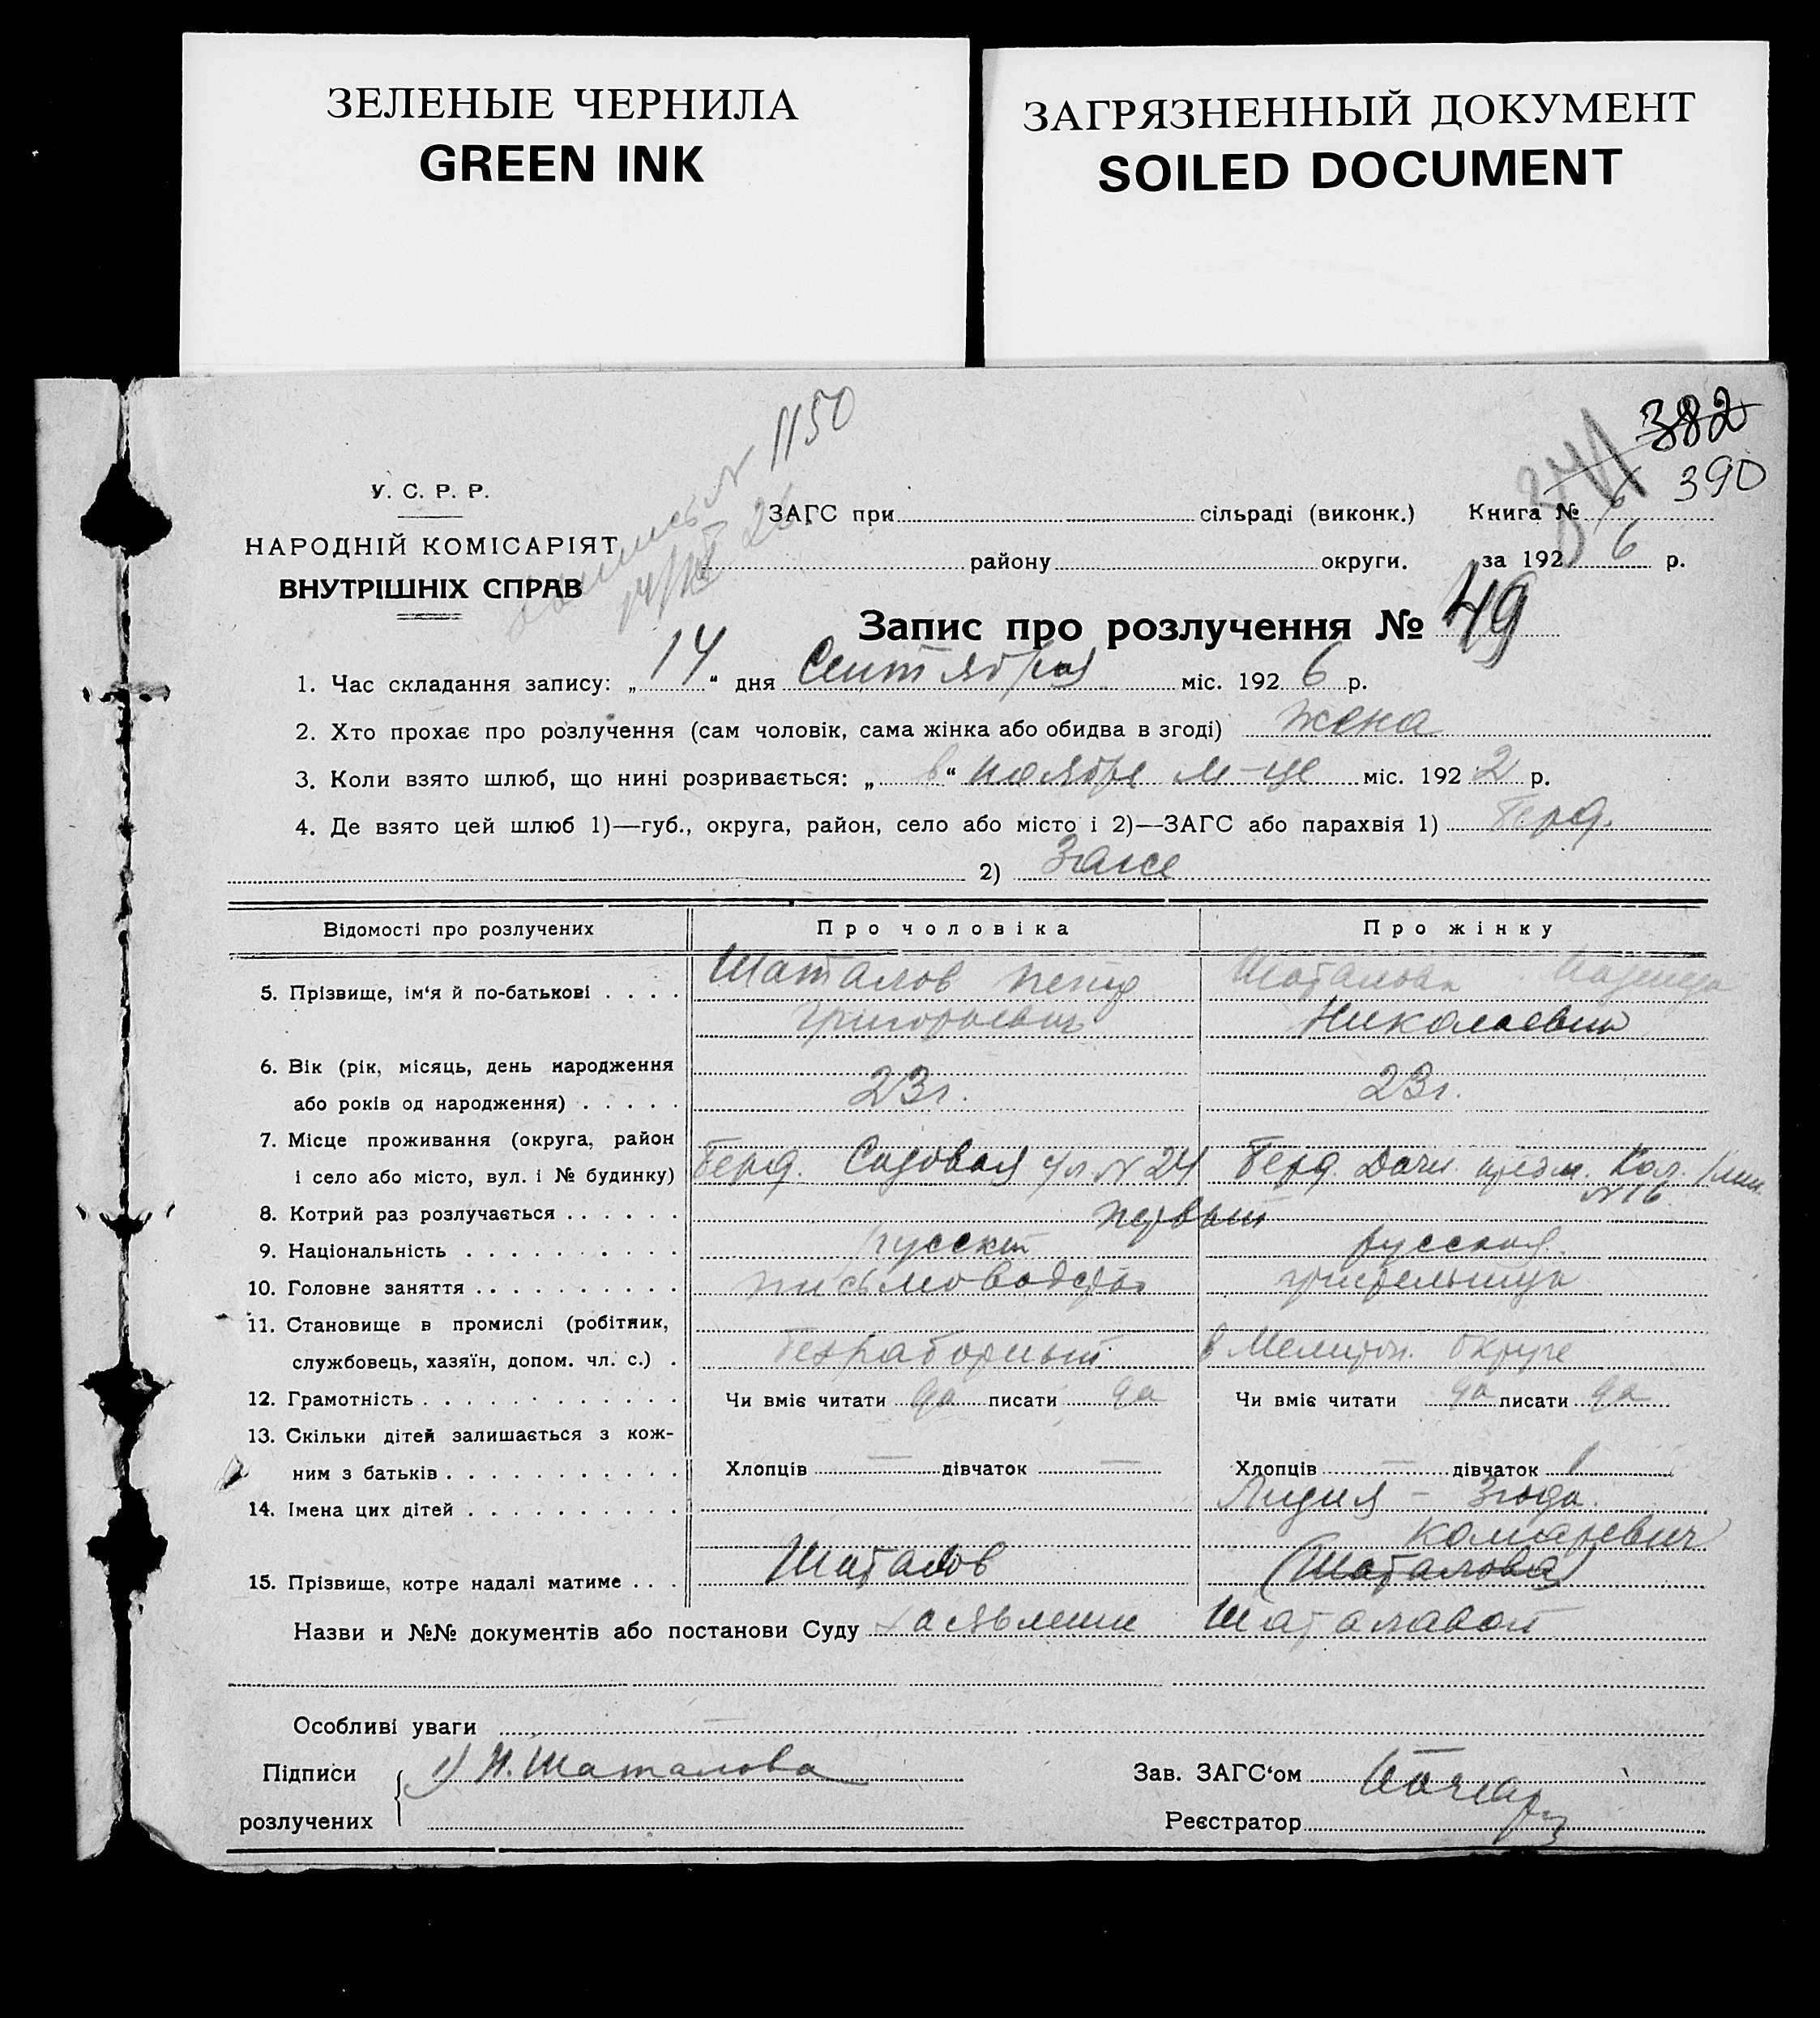 ЗЕЛЕНЫЕ ЧЕРНИЛА
GREEN INK
ЗАГРЯЗНЕННЫЙ ДОКУМЕНТ
SOILED DOCUMENT
1150
382
390
У. С. Р. Р.
НАРОДНІЙ КОМІСАРІЯТ
ВНУТРІШНІХ СПРАВ
ЗАГС при сільраді (виконк.) Книга №
району округи. за 1926 р.
Запис про розлучення № 49
1. Час складання запису: „14“ дня Сентября міс. 1926 р.
2. Хто прохає про розлучення (сам чоловік, сама жінка або обидва в згоді) жена
3. Коли взято шлюб, що нині розривається: „в“ ноябре м-це міс. 1922 р.
4. Де взято цей шлюб 1)—губ., округа, район, село або місто і 2)—ЗАГС або парахвія 1) Берд.
2) Загсе
Відомості про розлучених Про чоловіка Про жінку
5. Прізвище, ім'я й по-батькові . . . . Шаталов Петр Шаталова Надежда
Григорьевич Николаевна
6. Вік (рік, місяць, день народження
або років од народження) . . . . . 23г. 23г.
7. Місце проживання (округа, район
і село або місто, вул. і № будинку) Берд. Садовая ул № 24 Берд. Дачн. Кол.
№ 16
8. Котрий раз розлучається . . . . . . первый
9. Національність . . . . . . . . . . русский русская.
10. Головне заняття . . . . . . . . . . письмоводство учительница
11. Становище в промислі (робітник,
службовець, хазяїн, допом. чл. с.) . безработный в Мелитоп. округе
12. Грамотність . . . . . . . . . . . . Чи вміє читати да писати да Чи вміє читати да писати да
13. Скільки дітей залишається з кож-
ним з батьків . . . . . . . . . . . Хлопців — дівчаток — Хлопців — дівчаток 1
14. Імена цих дітей . . . . . . . . . . Лидия - 3 года.
Комаревич
15. Прізвище, котре надалі матиме . . . Шаталов (Шаталова)
Назви и №№ документів або постанови Суду заявление Шаталавой
Особливі уваги —
Підписи 1) Н. Шаталова Зав. ЗАГС'ом
розлучених Реєстратор